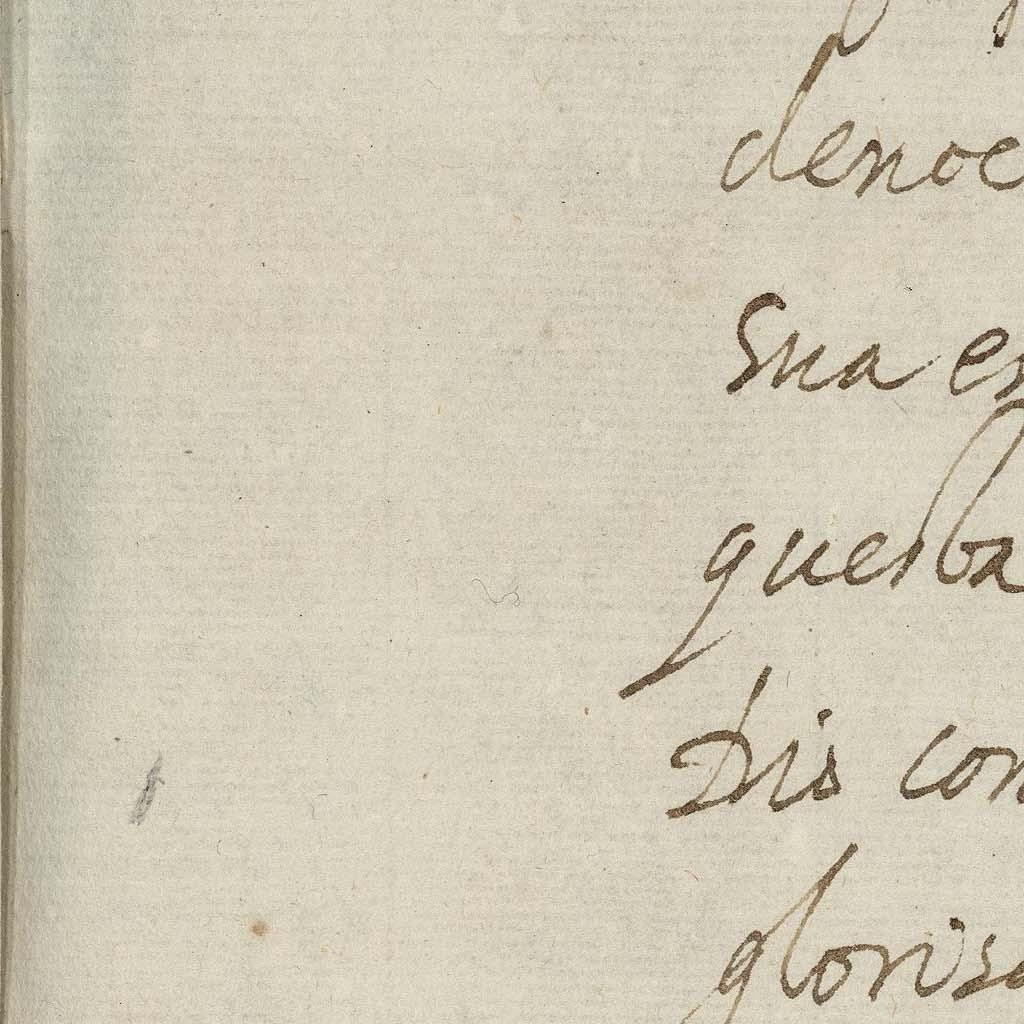 denoc
sua es
questa
Dis con
gloriso